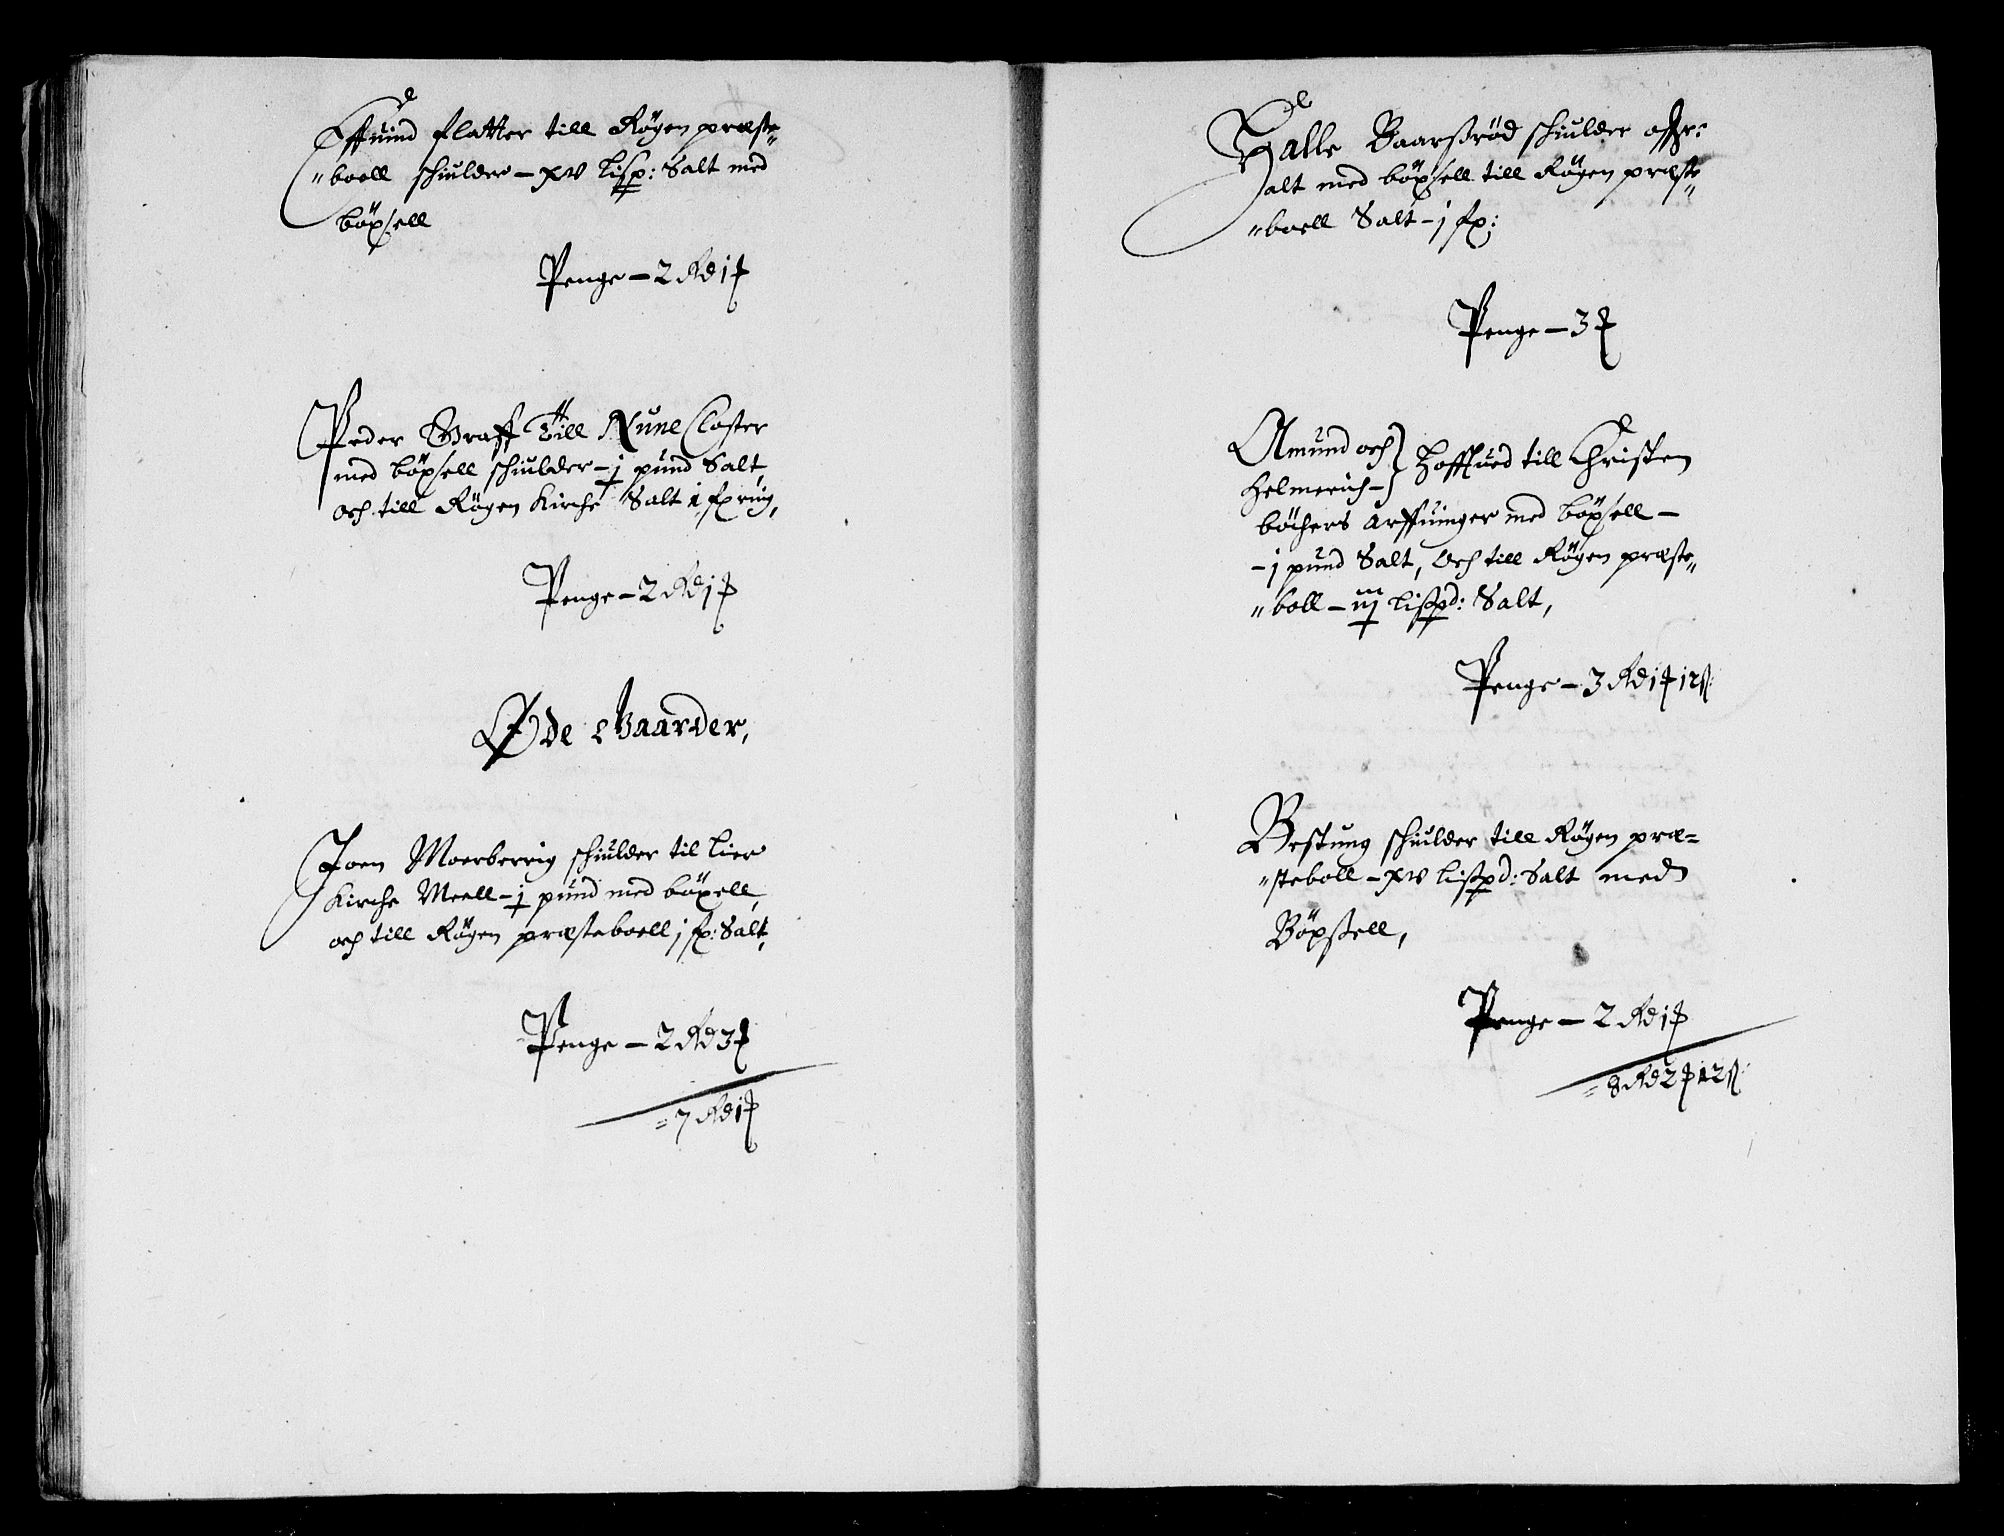 Effuind flatter till Røgen præste¬
"boell schiulder - xv Lisp: Salt med
böxsell
Penge - 2 Rd 1 ƒ
Peder Graff Till Nune Closter
med böxsell schiulder - j pund Salt,
och till Røgen Kirche Salt 1 fxring,
Penge - 2 Rd 1 ƒ
Øde Gaarder,
Joen Moerberrig schiulder til Lier
Kirche Meell - j pund med böxell,
och till Røgen præsteboell j fx: Salt,
Penge - 2 Rd 3 ƒ
= 7 Rd 1 ƒ
Halle Baarssrød schiulder
alt med böxsell till Røgen præste"
"boell Salt - j fx:
Penge - 3 ƒ
Amund och } Hoffued till Christen
Helmerich - }
böchers Arffuinger med böxsell -
- j pund Salt, Och till Røgen præste"
"boll - iij Lisspd: Salt,
Penge - 3 Rd 1 ƒ 12 ß:
Bestung schiulder till Røgen præ=
"steboll - xv Lisspd: Salt med
Böxssell,
Penge - 2 Rd 1 ƒ
= 8 Rd 2 ƒ 12 ß: